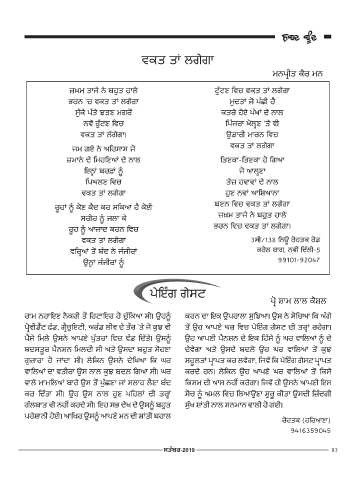 ਵਕਤ ਤਾਂ ਲਗੇਗਾ
ਮਨਪ੍ਰੀਤ ਕੌਰ ਮਨ
ਜ਼ਖਮ ਤਾਜੇ ਨੇ ਬਹੁਤ ਹਾਲੇ
ਭਰਨ 'ਚ ਵਕਤ ਤਾਂ ਲਗੇਗਾ
ਸੁੱਕੇ ਪੱਤੇ ਝੜਣ ਮਗਰੋਂ
ਨਵੇਂ ਫੁੱਟਣ ਵਿਚ
ਵਕਤ ਤਾਂ ਲੱਗੇਗਾ।
ਜਮ ਗਏ ਨੇ ਅਹਿਸਾਸ ਜੋ
ਜ਼ਮਾਨੇ ਦੇ ਮਿਹਣਿਆਂ ਦੇ ਨਾਲ
ਇਨ੍ਹਾਂ ਬਰਫ਼ਾਂ ਨੂੰ
ਪਿਘਲਣ ਵਿਚ
ਵਕਤ ਤਾਂ ਲਗੇਗਾ
ਰੂਹਾਂ ਨੂੰ ਕੌਣ ਕੈਦ ਕਰ ਸਕਿਆ ਹੈ ਕੋਈ
ਸਰੀਰ ਨੂੰ ਜਲਾ ਕੇ
ਰੂਹ ਨੂੰ ਆਜ਼ਾਦ ਕਰਨ ਵਿਚ
ਵਕਤ ਤਾਂ ਲਗੇਗਾ
ਵਰ੍ਹਿਆਂ ਤੋਂ ਬੰਦ ਨੇ ਜੰਜੀਰਾਂ
ਉਨ੍ਹਾਂ ਜੰਜੀਰਾਂ ਨੂੰ
ਟੁੱਟਣ ਵਿਚ ਵਕਤ ਤਾਂ ਲਗੇਗਾ
ਮੁਦਤਾਂ ਜੋ ਪੰਛੀ ਹੈ
ਕਤਰੇ ਹੋਏ ਪੰਖਾਂ ਦੇ ਨਾਲ
ਪਿੰਜਰਾ ਖੋਲ੍ਹਣ 'ਤੇ ਵੀ
ਉਡਾਰੀ ਮਾਰਨ ਵਿਚ
ਵਕਤ ਤਾਂ ਲਗੇਗਾ
ਤਿਣਕਾ-ਤਿਣਕਾ ਹੋ ਗਿਆ
ਜੋ ਆਲ੍ਹਣਾ
ਤੇਜ਼ ਹਵਾਵਾਂ ਦੇ ਨਾਲ
ਹੁਣ ਨਵਾਂ ਆਸ਼ਿਆਨਾ
ਬਣਨ ਵਿਚ ਵਕਤ ਤਾਂ ਲਗੇਗਾ
ਜ਼ਖਮ ਤਾਜੇ ਨੇ ਬਹੁਤ ਹਾਲੇ
ਭਰਨ ਵਿਚ ਵਕਤ ਤਾਂ ਲਗੇਗਾ।
3ਸੀ/138 ਨਿਊ ਰੋਹਤਕ ਰੋਡ
ਕਰੋਲ ਬਾਗ, ਨਵੀਂ ਦਿੱਲੀ-5
99101-92047
ਪੇਇੰਗ ਗੇਸਟ
ਪ੍ਰੋ ਸ਼ਾਮ ਲਾਲ ਕੌਸ਼ਲ
ਰਾਮ ਨਰਾਇਣ ਨੌਕਰੀ ਤੋਂ ਰਿਟਾਇਰ ਹੋ ਚੁੱਕਿਆ ਸੀ। ਉਹਨੂੰ
ਪ੍ਰੋਵੀਡੈਂਟ ਫੰਡ, ਗ੍ਰੈਚੁਇਟੀ, ਅਰੰਡ ਲੀਵ ਦੇ ਤੌਰ 'ਤੇ ਜੋ ਕੁਝ ਵੀ
ਪੈਸੇ ਮਿਲੇ ਉਸਨੇ ਆਪਣੇ ਪੁੱਤਰਾਂ ਵਿਚ ਵੰਡ ਦਿੱਤੇ। ਉਸਨੂੰ
ਬਦਸਤੂਰ ਪੈਨਸ਼ਨ ਮਿਲਦੀ ਸੀ ਅਤੇ ਉਸਦਾ ਬਹੁਤ ਸੋਹਣਾ
ਗੁਜ਼ਾਰਾ ਹੋ ਜਾਂਦਾ ਸੀ। ਲੇਕਿਨ ਉਸਨੇ ਦੇਖਿਆ ਕਿ ਘਰ
ਵਾਲਿਆਂ ਦਾ ਵਤੀਰਾ ਉਸ ਨਾਲ ਕੁਝ ਬਦਲ ਗਿਆ ਸੀ। ਘਰ
ਵਾਲੇ ਮਾਮਲਿਆਂ ਬਾਰੇ ਉਸ ਤੋਂ ਪੁੱਛਣਾ ਜਾਂ ਸਲਾਹ ਲੈਣਾ ਬੰਦ
ਕਰ ਦਿੱਤਾ ਸੀ। ਉਹ ਉਸ ਨਾਲ ਹੁਣ ਪਹਿਲਾਂ ਦੀ ਤਰ੍ਹਾਂ
ਗੱਲਬਾਤ ਵੀ ਨਹੀਂ ਕਰਦੇ ਸੀ। ਇਹ ਸਭ ਦੇਖ ਕੇ ਉਸਨੂੰ ਬਹੁਤ
ਪਰੇਸ਼ਾਨੀ ਹੋਈ। ਆਖਿਰ ਉਸਨੂੰ ਆਪਣੇ ਮਨ ਦੀ ਸ਼ਾਂਤੀ ਬਹਾਲ
ਕਰਨ ਦਾ ਇਕ ਉਪਰਾਲਾ ਸੁਝਿਆ। ਉਸ ਨੇ ਸੋਚਿਆ ਕਿ ਅੱਗੇ
ਤੋਂ ਉਹ ਆਪਣੇ ਘਰ ਵਿਚ ਪੇਇੰਗ ਗੇਸਟ ਦੀ ਤਰ੍ਹਾਂ ਰਹੇਗਾ।
ਉਹ ਆਪਣੀ ਪੈਨਸ਼ਨ ਦੇ ਇਕ ਹਿੱਸੇ ਨੂੰ ਘਰ ਵਾਲਿਆਂ ਨੂੰ ਦੇ
ਦੇਵੇਗਾ ਅਤੇ ਉਸਦੇ ਬਦਲੇ ਉਹ ਘਰ ਵਾਲਿਆਂ ਤੋਂ ਕੁਝ
ਸਹੂਲਤਾਂ ਪ੍ਰਾਪਤ ਕਰ ਲਵੇਗਾ, ਜਿਵੇਂ ਕਿ ਪੇਇੰਗ ਗੇਸਟ ਪ੍ਰਾਪਤ
ਕਰਦੇ ਹਨ। ਲੇਕਿਨ ਉਹ ਆਪਣੇ ਘਰ ਵਾਲਿਆਂ ਤੋਂ ਕਿਸੇ
ਕਿਸਮ ਦੀ ਆਸ ਨਹੀਂ ਕਰੇਗਾ। ਜਿਵੇਂ ਹੀ ਉਸਨੇ ਆਪਣੀ ਇਸ
ਸੋਚ ਨੂੰ ਅਮਲ ਵਿਚ ਲਿਆਉਣਾ ਸ਼ੁਰੂ ਕੀਤਾ ਉਸਦੀ ਜ਼ਿੰਦਗੀ
ਸੁੱਖ ਸ਼ਾਂਤੀ ਨਾਲ ਸਨਮਾਨ ਵਾਲੀ ਹੋ ਗਈ।
ਰੋਹਤਕ (ਹਰਿਆਣਾ)
9416359045
ਸਤੰਬਰ-2019
83